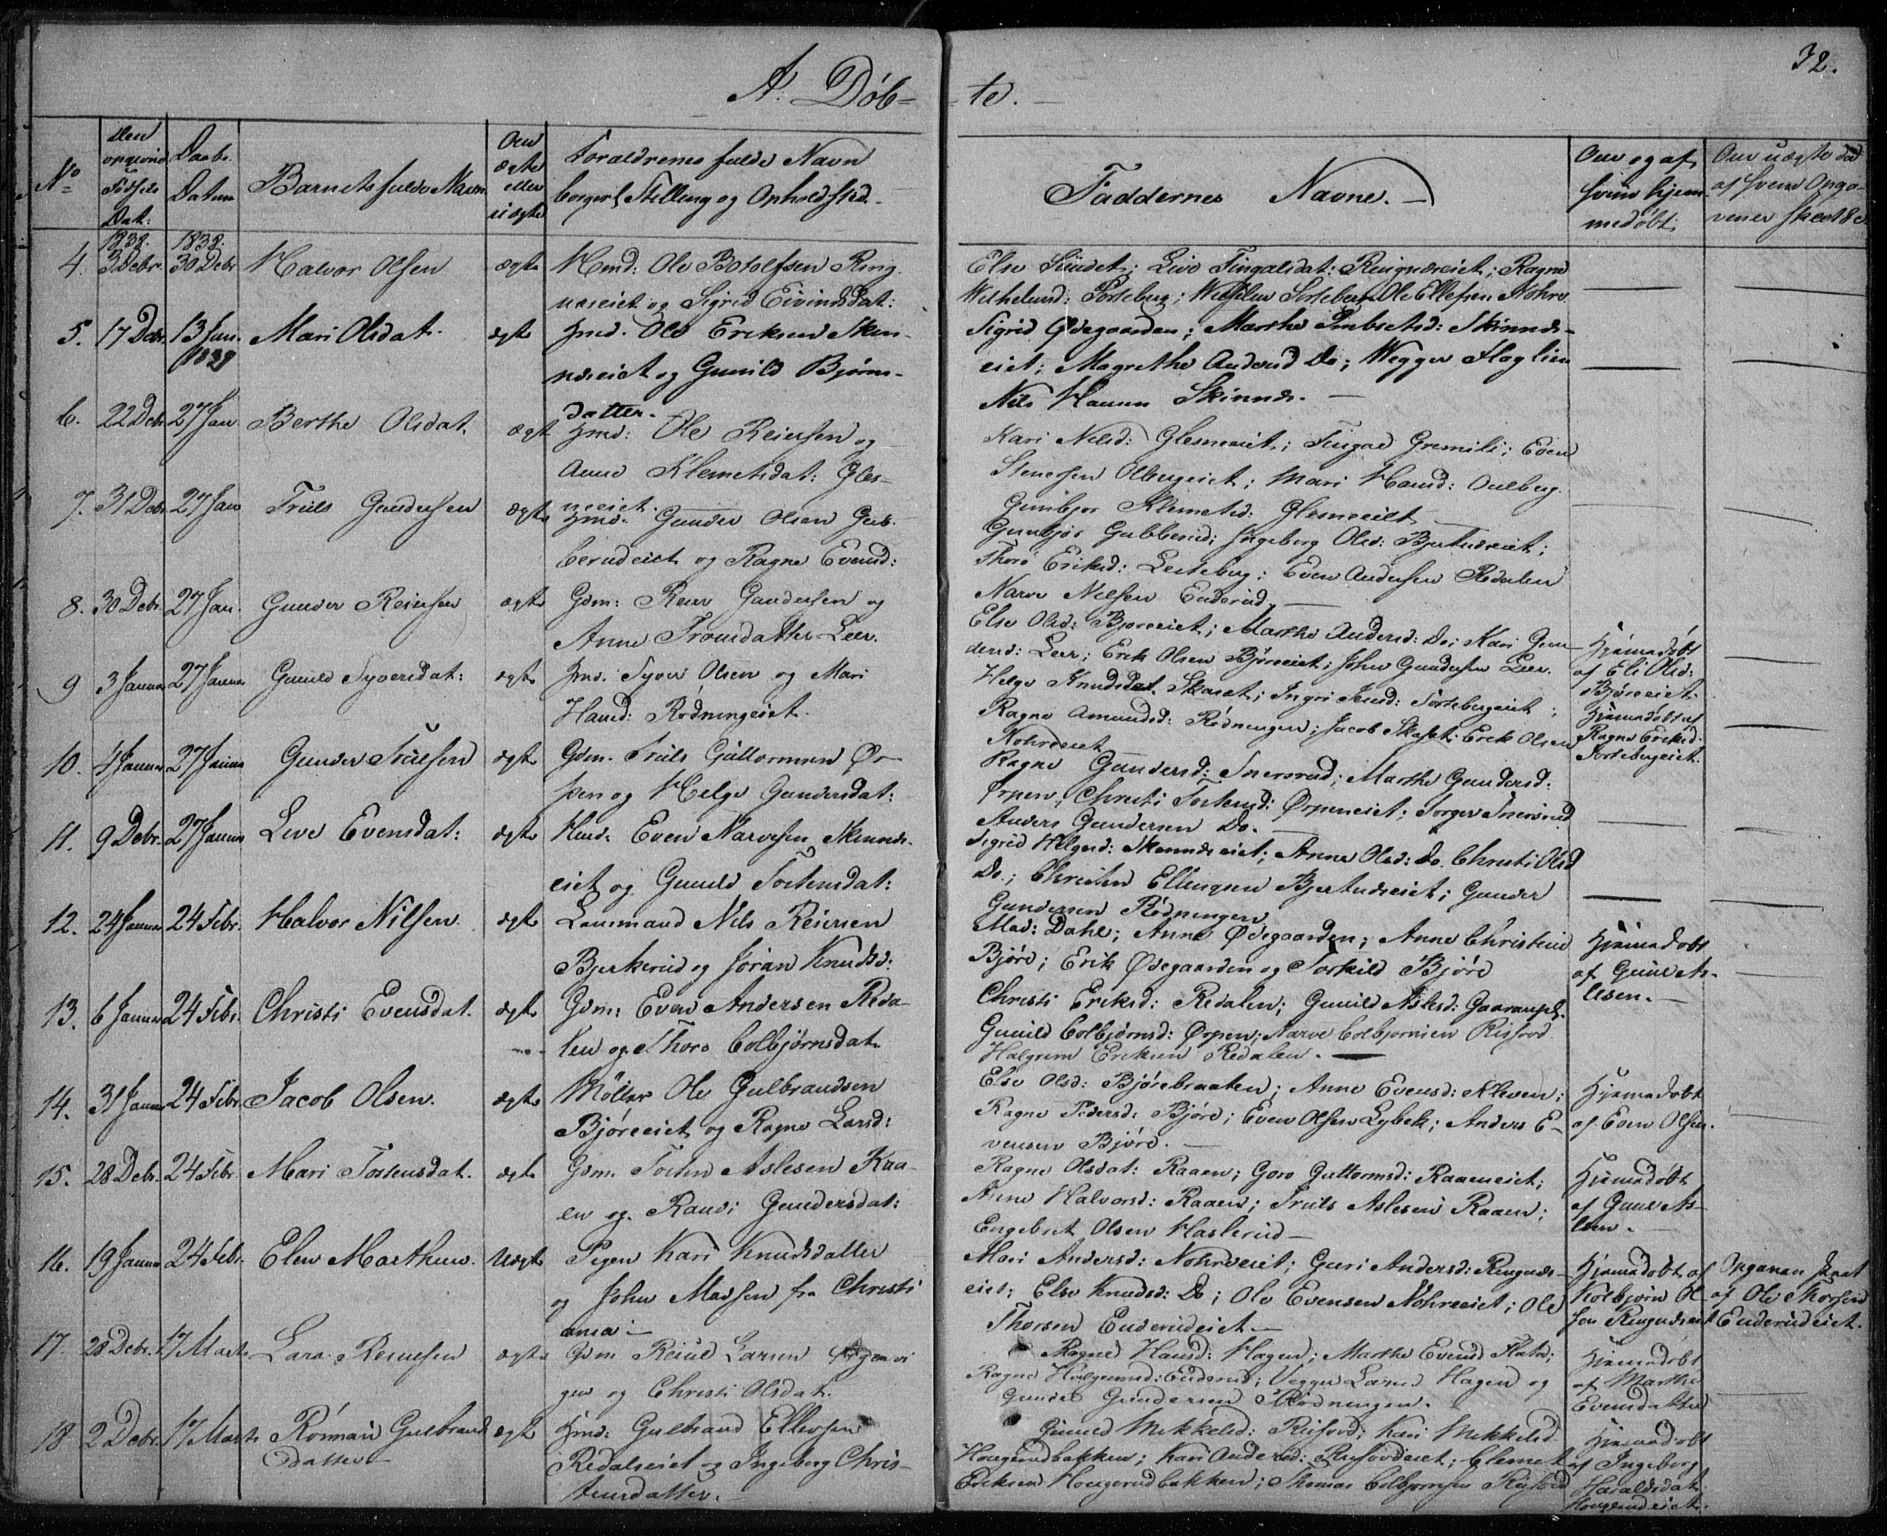 32.
A. Døb-
-te.
No
Den
Fødsels
Dat:
Daabs
Datum
Barnets fulde Navn
Om
ægte
eller
uægte
Forældrenes fulde Navn
borgerl Stilling og Opholdssted.
Faddernes Navne.
Om og af
hvem hjem-
medøbt
Om uægte
af hvem Opga-
vener skeet &c
1838. 1838.
4. 3 Debr. 30 Debr Halvor Olsen ægte Hmd: Ole Botolfsen Ring-
næseiet og Sigrid Eivindsdat:
Else ; Live Tingalsdat: ; Ragne
Wilhelmsd: Sorteberg; Ole Ellefsen Nohre
5. 17 Debr. 13 Jan. Mari Olsdat. ægte Hmd. Ole Eriksen Skin-
1839
næseiet og Gunild Bjørns-
datter.
Sigrid Ødegaarden; Marthe Skinnæs-
eiet; Magrethe Andersd Do; Wegger Haglien
Nils Skinnæs.
6. 22 Debr 27 Jan Berthe Olsdat. ægte Hmd: Ole Reiersen og
Anne Klemetsdat: Gles-
neeiet.
Kari Nilsd: Glesneeiet; Tingal Gremili; Even
Stenersen Olbergeiet; Mari Hansd: Oulberg.
Gunbjør Klemetsd: Glesneeiet
7. 31 Debr. 27 Jan Truls Gundersen ægte Hmd. Gunder Olsen Gub-
berudeiet og Ragne Evensd:
Gunbjør Gubberud; Ingeborg Olsd: Bjertnæseiet;
Thore Eriksd: ; Even Andersen Redalen
Narve Nilsen Enderud.
8. 30 Debr. 27 Jan. Gunder Reiersen ægte Gdm: Reier Gundersen og
Anne Tronsdatter Leer.
Else Olsd: Bjøreeiet; Marthe Andersd: Do; Kari Gun-
dersd: Leer; Erik Olsen Bjøreeiet; John Gundersen Leer.
Hjemmedøbt
af Eli Olsd:
Bjøreeiet.
9 3 Januar 27 Januar Gunild Syversdat: ægte Hmd. Syver Olsen og Mari
Hansd: Rødningeiet.
Helge Knudsdat. Skaset; Ingri Sortebergeiet;
Ragne Amundsd: Rødningen; Jacob Skaset; Erik Olsen
Nohreeiet
Hjemmedøbt af
Ragne Eriksd.
Sortebergeiet.
10. 4 Januar 27 Januar Gunder Trulsen ægte Gdm. Truls Guttormsen Ør-
pen og Helge Gundersdat:
Ragne Gundersd: Snersrud; Marthe Gundersd:
Ørpen; Christi Tostensd: Ørpeneiet; Snersrud
Anders Gundersen Do.
11. 9 Debr. 27 Januar Live Evensdat: ægte Hmd: Even Narvesen Skinnæs-
eiet og Gunild Tostensdat:
Sigrid Helgesd: Skinnæseiet; Anne Olsd: Do. Christi Olsd
Do.; Christen Ellingsen Bjertnæseiet; Gunder
Gundersen Rødningen
12. 24 Januar 24 Febr. Halvor Nilsen. ægte Lensmand Nils Reiersen
Bjerkerud og Jøran Knudsd:
Mad: Dahl; Anne Ødegaarden; Anne Christine
Bjøre; Erik Ødegaarden og Torkild Bjøre
Hjemmedøbt
af Gune As-
lesen.
13. 6 Januar 24 Febr. Christi Evensdat. ægte Gdm: Even Andersen Reda-
len og Thore Colbjørnsdat.
Christi Eriksd: Redalen; Gunild Aslesd:
Gunild Colbjørnsd: Ørpen; Narve Colbjørnsen Risford
Halgrim Eriksen Redalen.
14. 31 Januar 24 Febr. Jacob Olsen. ægte Møller Ole Gulbrandsen
Bjøreeiet og Ragne Larsd:
Else Olsd: Bjørebraaten; Anne Evensd: Kleven;
Ragne Pedersd: Bjøre; Even Olsen Lybek; Anders E-
vensen Bjøre.
Hjemmedøbt
af Even Olsen.
15. 28 Debr. 24 Febr. Mari Tostensdat. ægte Gdm. Tosten Aslesen Raa-
en og Randi Gundersdat:
Ragne Olsdat: Raaen; Goro Guttormsd: Raaeneiet;
Anne Halvorsd: Raaen; Truls Aslesen Raaen;
Engebret Olsen Haslerud
Hjemmedøbt
af Gune As-
lesen.
16. 19 Januar 24 Febr. Elen Marthine. Uægte Pigen Kari Knudsdatter
og John Madsen fra Christi
ania
Mari Andersd: Nohreeiet; Guri Andersd: Ringnæs-
eiet; Else Knudsd: Do; Ole Evensen Nohreeiet; Ole
Thorsen Enderudeiet
Hjemmedøbt af
Kolbjørn Ol-
sen Ringnæseiet
Opgaven skeet
af Ole Thorsen
Enderudeiet.
17. 28 Debr. 17 Marts Lars Reiersen ægte Gdm Larsen
gen og Christi Olsdat.
Ragne Hansd: Hagen; Marthe Evensd Flata;
Ragne Halgrimsd: Enderud; Vegger Larsen Hagen og
Gunder Gundersen Rødningen.
Hjemmedøbt
af Marthe
Evensdatter
18 2 Debr. 17 Marts Rønnau Gulbrands ægte Hmd: Gulbrand Ellevsen
datter
Redalseiet og Ingeborg Chris-
tensdatter.
Gunild Mikkelsd: Risford; Kari Mikkelsd
Hougerudbakken; Kari Andersd: Risfordeiet; Clemet
Eriksen Hougerudbakken; Thomas Colbjørnsen Risford
Hjemmedøbt
af Ingeborg
Haraldsdat.
Hougerudeiet.